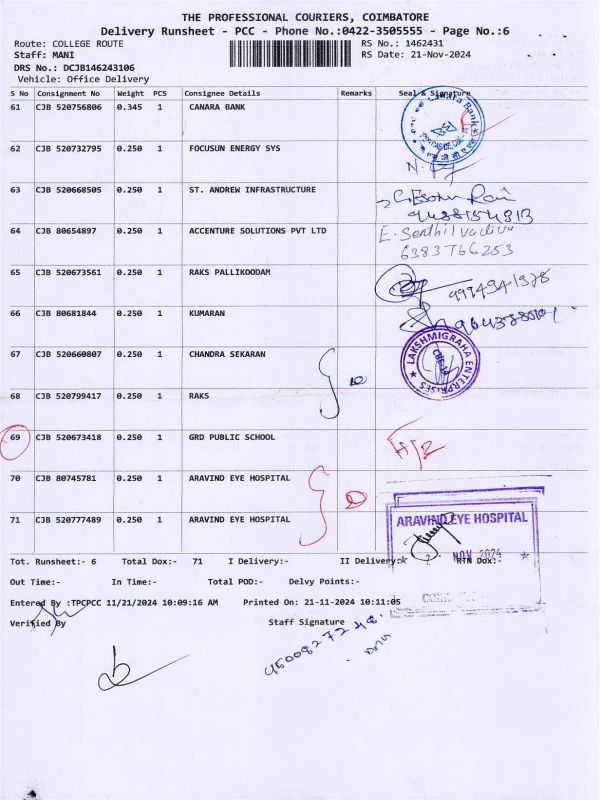 THE PROFESSIONAL COURIERS, COIMBATORE
Delivery Runsheet - PCC - Phone No.:0422-3505555 - Page No.:6
Route: COLLEGE ROUTE RS No.: 1462431
Staff: MANI RS Date: 21-Nov-2024
DRS No.: DCJB146243106
Vehicle: Office Delivery
S No Consignment No Weight PCS Consignee Details Remarks Seal & Signature
61 CJB 520756806 0.345 1 CANARA BANK
62 CJB 520732795 0.250 1 FOCUSUN ENERGY SYS
63 CJB 520668505 0.250 1 ST. ANDREW INFRASTRUCTURE
64 CJB 80654897 0.250 1 ACCENTURE SOLUTIONS PVT LTD E. Senthil vadivu
6383766253
65 CJB 520673561 0.250 1 RAKS PALLIKOODAM
66 CJB 80681844 0.250 1 KUMARAN
67 CJB 520660807 0.250 1 CHANDRA SEKARAN
LAKSHMIGRAHA ENTERPRISES
68 CJB 520799417 0.250 1 RAKS
69 CJB 520673418 0.250 1 GRD PUBLIC SCHOOL
70 CJB 80745781 0.250 1 ARAVIND EYE HOSPITAL
71 CJB 520777489 0.250 1 ARAVIND EYE HOSPITAL
ARAVIND EYE HOSPITAL
NOV 2024
Tot. Runsheet:- 6 Total Dox:- 71 I Delivery:- II Delivery:- RTN Dox:-
Out Time:- In Time:- Total POD:- Delvy Points:-
Entered By :TPCPCC 11/21/2024 10:09:16 AM Printed On: 21-11-2024 10:11:05
Verified By Staff Signature